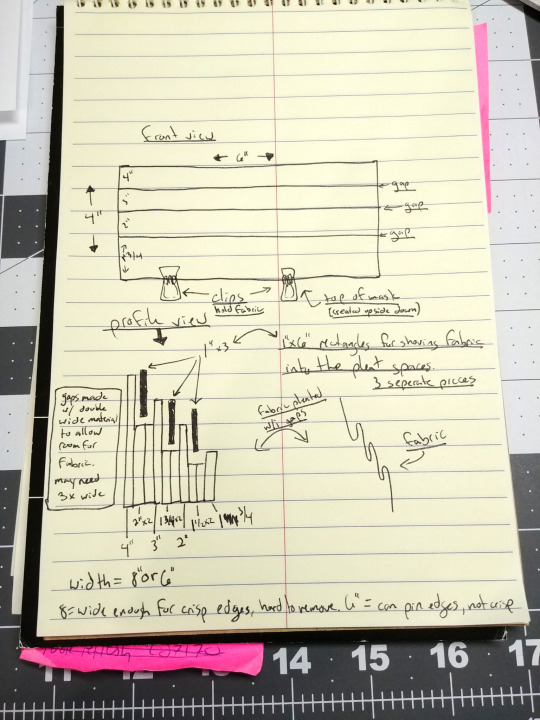 front view
6"
4"
3"
2"
1 3/4
4"
gap
gap
gap
clips
hold fabric
top of mask
(created upside down)
profile view
1" x 3
1"x6" rectangles for shoving fabric
into the pleat spaces.
3 seperate pieces
gaps made
w/ double
wide material
to allow
room for
fabric.
may need
3x wide
fabric pleated
w/ gaps
fabric
2" x2
1 3/4 x2
1 1/2 x2
3/4
4"
3"
2"
width = 8" or 6"
8= wide enough for crisp edges, hard to remove. 6" = can pin edges, not crisp
11
12
13
14
15
16
17